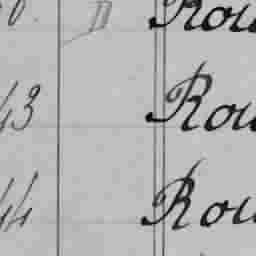 Rou
43 Rou
44 Rou